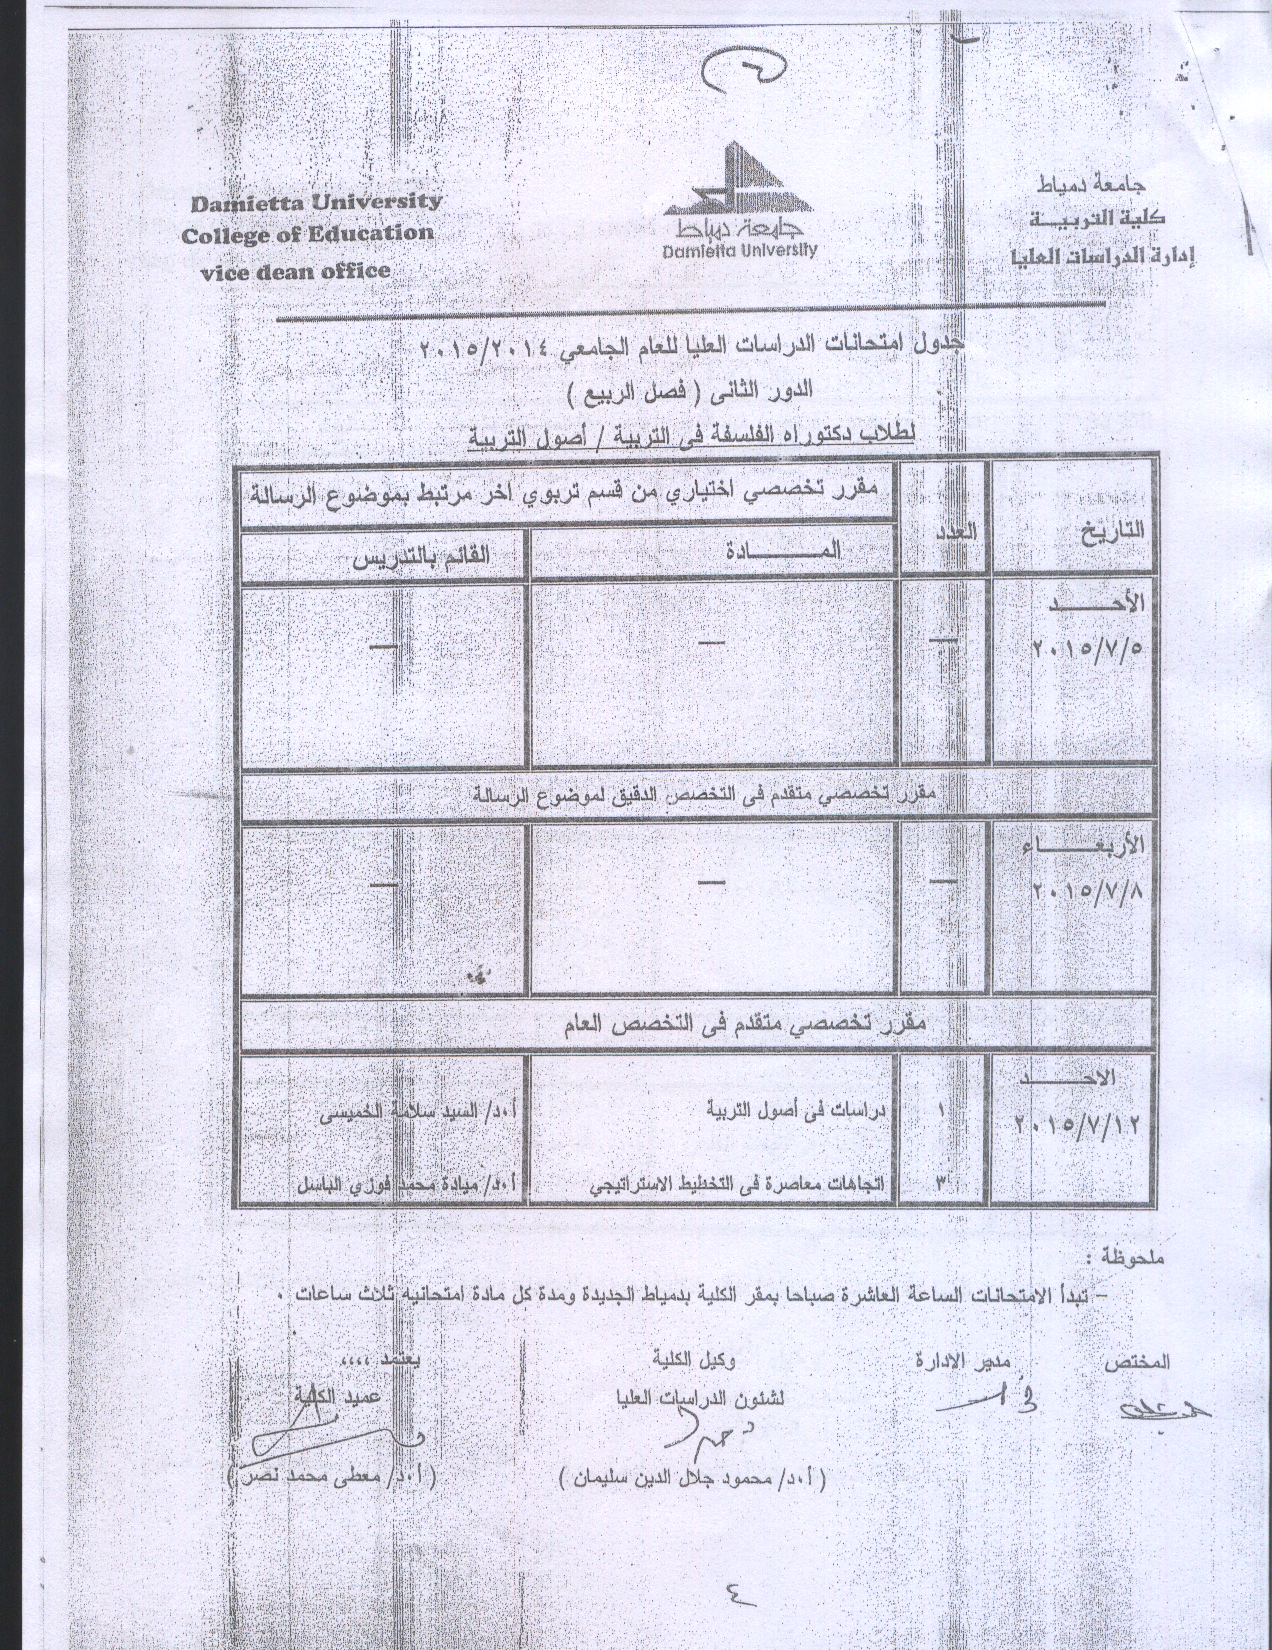 جامعة دمياط
كلية التربيـــة
إدارة الدراسات العليا
جامعة دمياط
Damietta University
Damietta University
College of Education
vice dean office
جدول امتحانات الدراسات العليا للعام الجامعي ٢٠١٥/٢٠١٤
الدور الثانى ( فصل الربيع )
لطلاب دكتوراه الفلسفة فى التربية / أصول التربية
التاريخ
العدد
مقرر تخصصي اختياري من قسم تربوي اخر مرتبط بموضوع الرسالة
المـــــــــادة
القائم بالتدريس
الأحـــــد
٢٠١٥/٧/٥
— — —
مقرر تخصصي متقدم فى التخصص الدقيق لموضوع الرسالة
الأربعـــــــاء
٢٠١٥/٧/٨
— — —
مقرر تخصصي متقدم فى التخصص العام
الاحـــــــد
٢٠١٥/٧/١٢
١ دراسات فى أصول التربية أ.د/ السيد سلامة الخميسى
٣ اتجاهات معاصرة فى التخطيط الاستراتيجي أ.د/ ميادة محمد فوزي الباسل
ملحوظة :
– تبدأ الامتحانات الساعة العاشرة صباحا بمقر الكلية بدمياط الجديدة ومدة كل مادة امتحانيه ثلاث ساعات .
المختص مدير الادارة وكيل الكلية يعتمد ،،،،
لشئون الدراسات العليا عميد الكلية
( أ.د/ محمود جلال الدين سليمان ) ( أ.د/ معطى محمد نصر )
٤